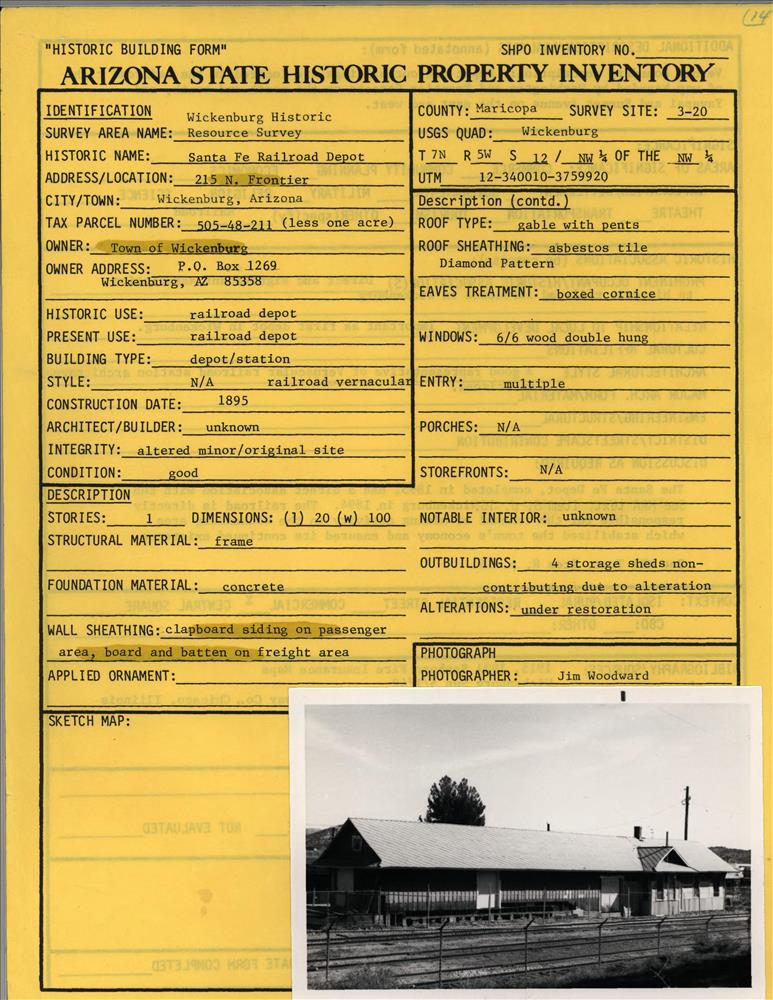 (14
"HISTORIC BUILDING FORM"
SHPO INVENTORY NO.
ARIZONA STATE HISTORIC PROPERTY INVENTORY
IDENTIFICATION
Wickenburg Historic
SURVEY AREA NAME: Resource Survey
HISTORIC NAME: Santa Fe Railroad Depot
ADDRESS/LOCATION: 215 N. Frontier
CITY/TOWN: Wickenburg, Arizona
TAX PARCEL NUMBER: 505-48-211 (less one acre)
OWNER: Town of Wickenburg
OWNER ADDRESS: P.O. Box 1269
Wickenburg, AZ 85358
HISTORIC USE: railroad depot
PRESENT USE: railroad depot
BUILDING TYPE: depot/station
STYLE: N/A railroad vernacular
CONSTRUCTION DATE: 1895
ARCHITECT/BUILDER: unknown
INTEGRITY: altered minor/original site
CONDITION: good
DESCRIPTION
STORIES: 1 DIMENSIONS: (l) 20 (w) 100
STRUCTURAL MATERIAL: frame
FOUNDATION MATERIAL: concrete
WALL SHEATHING: clapboard siding on passenger
area, board and batten on freight area
APPLIED ORNAMENT:
SKETCH MAP:
COUNTY: Maricopa SURVEY SITE: 3-20
USGS QUAD: Wickenburg
T 7N R 5W S 12 / NW ¼ OF THE NW ¼
UTM 12-340010-3759920
Description (contd.)
ROOF TYPE: gable with pents
ROOF SHEATHING: asbestos tile
Diamond Pattern
EAVES TREATMENT: boxed cornice
WINDOWS: 6/6 wood double hung
ENTRY: multiple
PORCHES: N/A
STOREFRONTS: N/A
NOTABLE INTERIOR: unknown
OUTBUILDINGS: 4 storage sheds non-
contributing due to alteration
ALTERATIONS: under restoration
PHOTOGRAPH
PHOTOGRAPHER: Jim Woodward